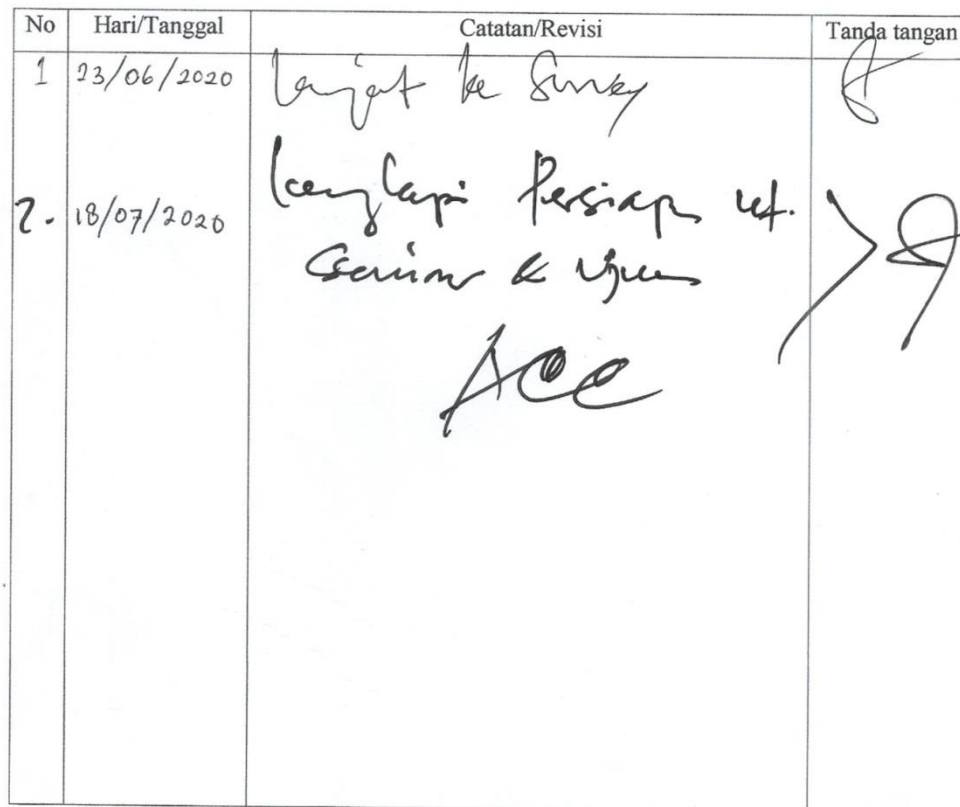 No Hari/Tanggal Catatan/Revisi Tanda tangan
1 23/06/2020 Lanjut ke Survey
2. 18/07/2020 Lengkapi Persiapan ut.
Seminar & Ujian
ACC